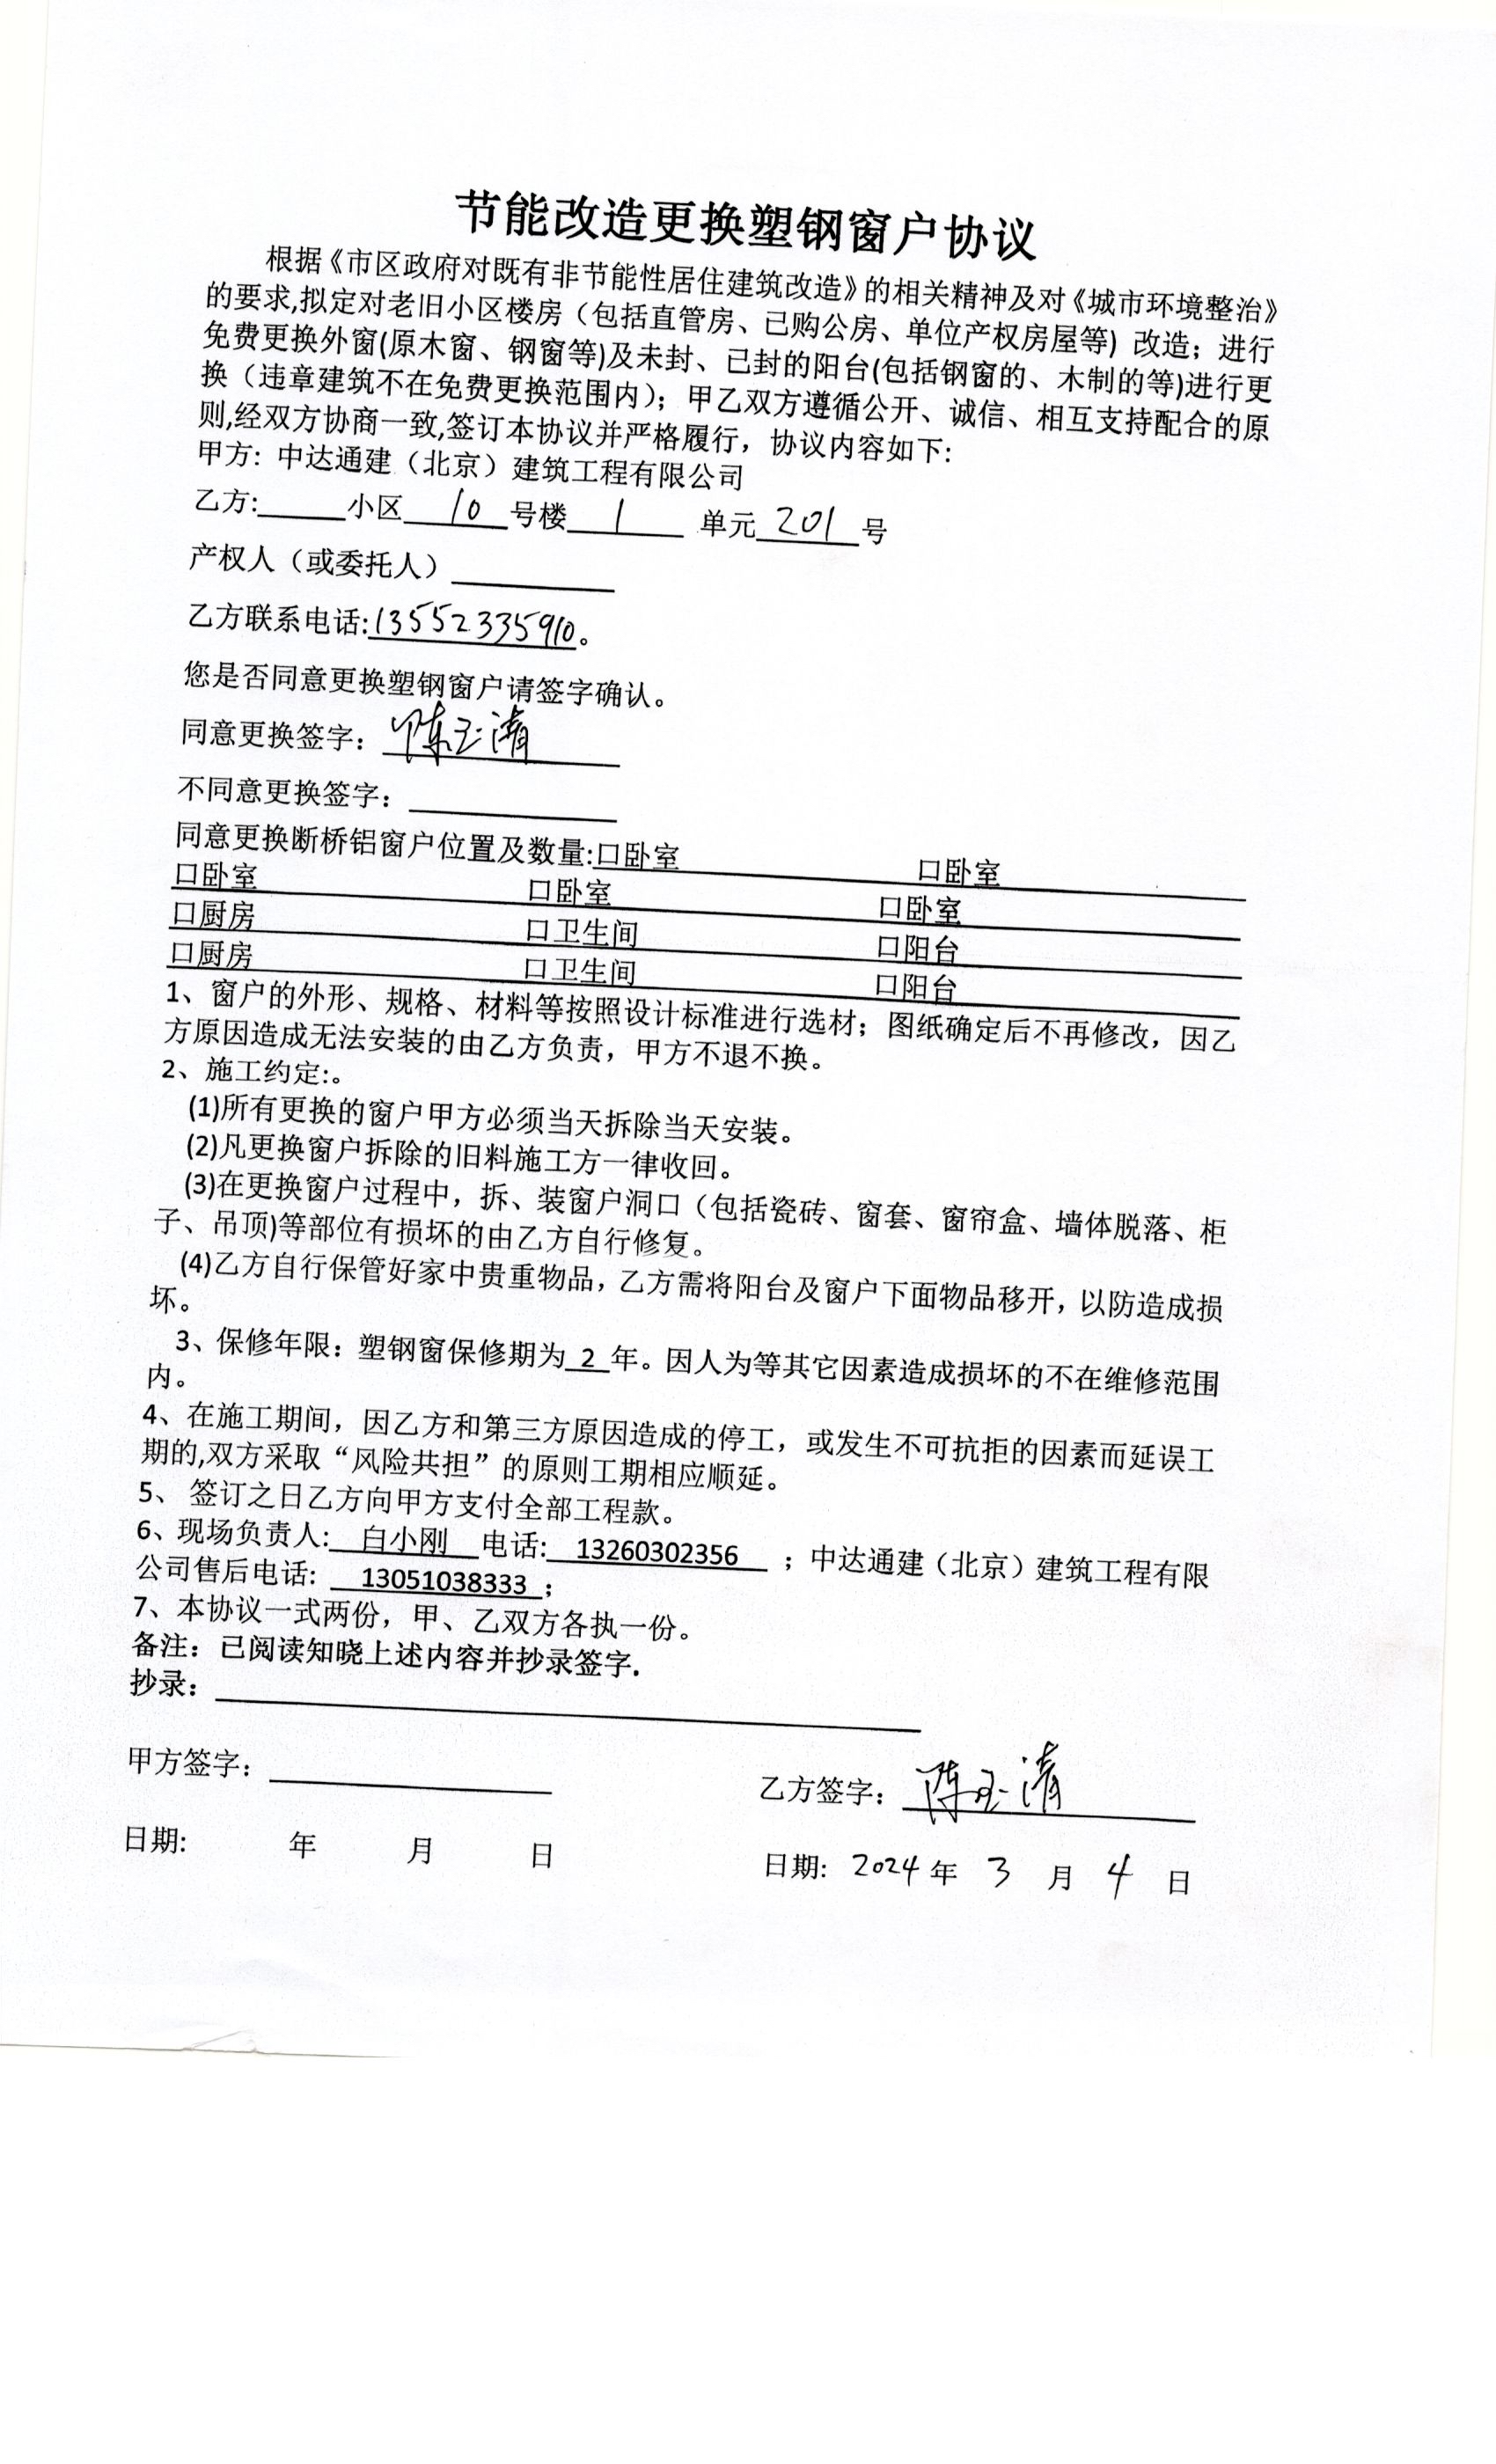 节能改造更换塑钢窗户协议
根据《市区政府对既有非节能性居住建筑改造》的相关精神及对《城市环境整治》
的要求,拟定对老旧小区楼房（包括直管房、已购公房、单位产权房屋等）改造；进行
免费更换外窗(原木窗、钢窗等)及未封、已封的阳台(包括钢窗的、木制的等)进行更
换（违章建筑不在免费更换范围内）；甲乙双方遵循公开、诚信、相互支持配合的原
则,经双方协商一致,签订本协议并严格履行，协议内容如下:
甲方：中达通建（北京）建筑工程有限公司
乙方:______小区 10 号楼 1 单元 201 号
产权人（或委托人）__________
乙方联系电话:13552335910。
您是否同意更换塑钢窗户请签字确认。
同意更换签字：陈玉清
不同意更换签字：__________
同意更换断桥铝窗户位置及数量:口卧室 口卧室
口卧室 口卧室 口卧室
口厨房 口卫生间 口阳台
口厨房 口卫生间 口阳台
1、窗户的外形、规格、材料等按照设计标准进行选材；图纸确定后不再修改，因乙
方原因造成无法安装的由乙方负责，甲方不退不换。
2、施工约定:。
(1)所有更换的窗户甲方必须当天拆除当天安装。
(2)凡更换窗户拆除的旧料施工方一律收回。
(3)在更换窗户过程中，拆、装窗户洞口（包括瓷砖、窗套、窗帘盒、墙体脱落、柜
子、吊顶)等部位有损坏的由乙方自行修复。
(4)乙方自行保管好家中贵重物品，乙方需将阳台及窗户下面物品移开，以防造成损
坏。
3、保修年限：塑钢窗保修期为 2 年。因人为等其它因素造成损坏的不在维修范围
内。
4、在施工期间，因乙方和第三方原因造成的停工，或发生不可抗拒的因素而延误工
期的,双方采取“风险共担”的原则工期相应顺延。
5、 签订之日乙方向甲方支付全部工程款。
6、现场负责人: 白小刚 电话: 13260302356 ；中达通建（北京）建筑工程有限
公司售后电话: 13051038333 ；
7、本协议一式两份，甲、乙双方各执一份。
备注：已阅读知晓上述内容并抄录签字.
抄录：__________
甲方签字：__________ 乙方签字：陈玉清
日期: 年 月 日 日期: 2024 年 3 月 4 日